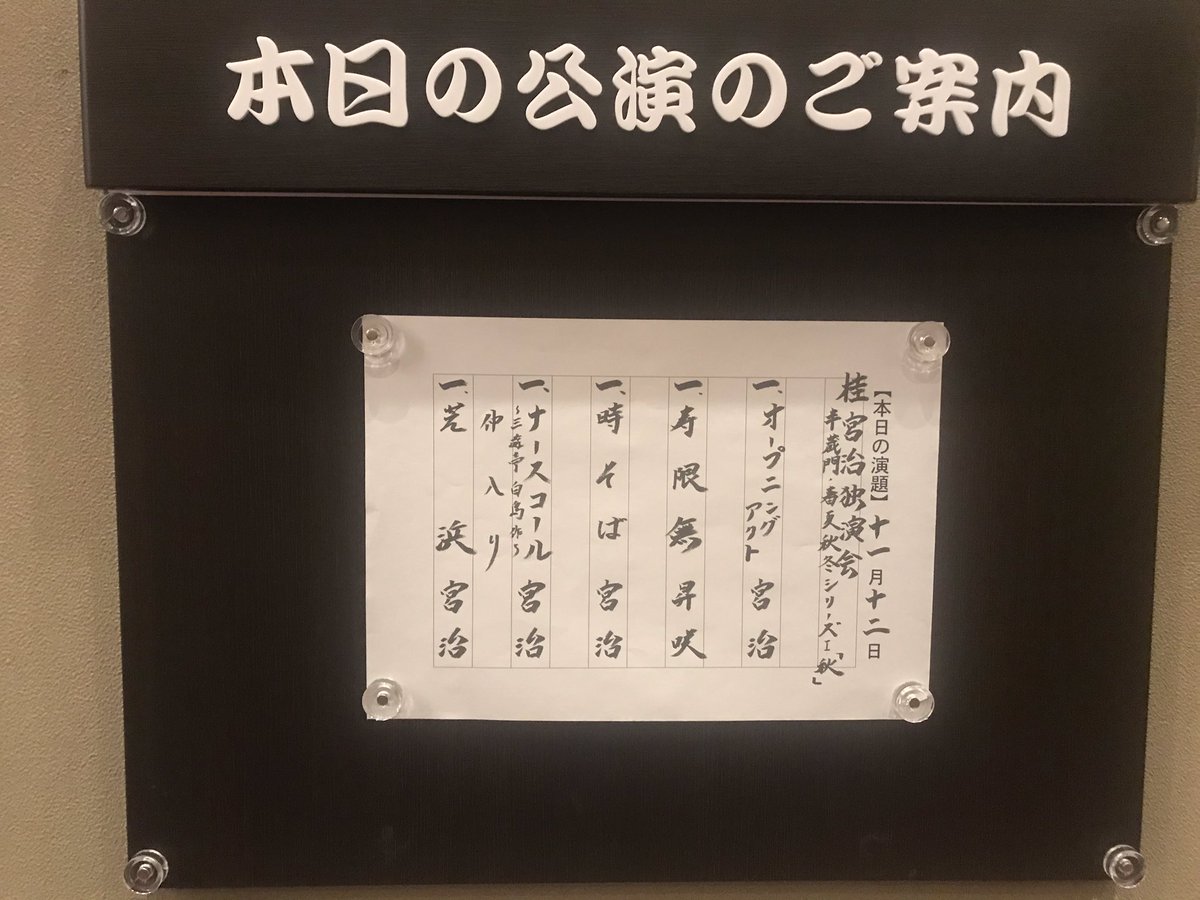 本日の公演のご案内
【本日の演題】十一月十二日
桂宮治独演会
半蔵門・春夏秋冬シリーズⅠ「秋」
一、オープニングアクト 宮治
一、寿限無 昇咲
一、時そば 宮治
一、ナースコール 宮治
～三遊亭白鳥作～
仲入り
一、芝浜 宮治